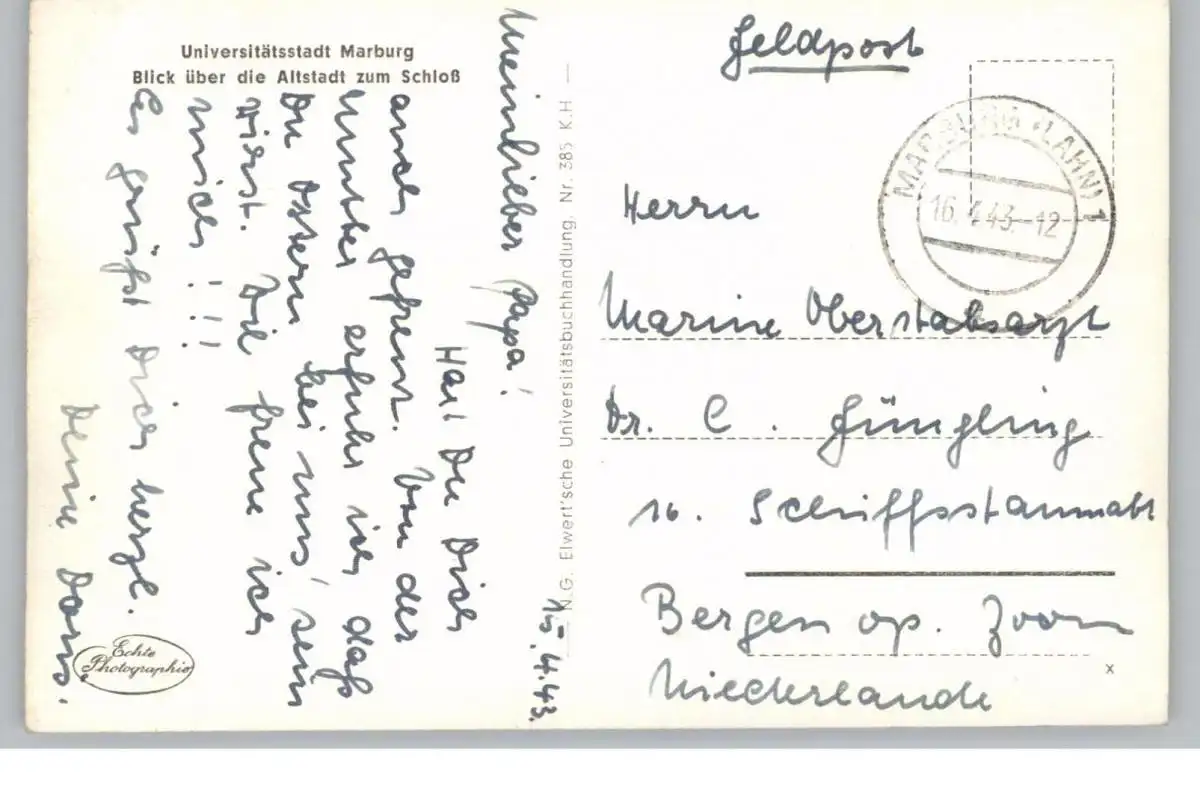 Universitätsstadt Marburg
Blick über die Altstadt zum Schloß
4.43.
Mein lieber Papa!
Hast Du Dich
auch gefreut. Von der
Mutter erfuhr ich, daß
Du Ostern bei uns sein
wirst. Die freue ich
mich!!!
Es grüßt Dich herzl.
Deine Doris.
Echte
Photographie
N.G. Elwert'sche Universitätsbuchhandlung. Nr. 385 K.H
Feldpost
MARBURG (LAHN) 1
16.4.43.-12
Herrn
Marine Oberstabsarzt
Dr. C. Jüngling
16. Schiffsstammabt
Bergen op. Zoom
Niederlande
x